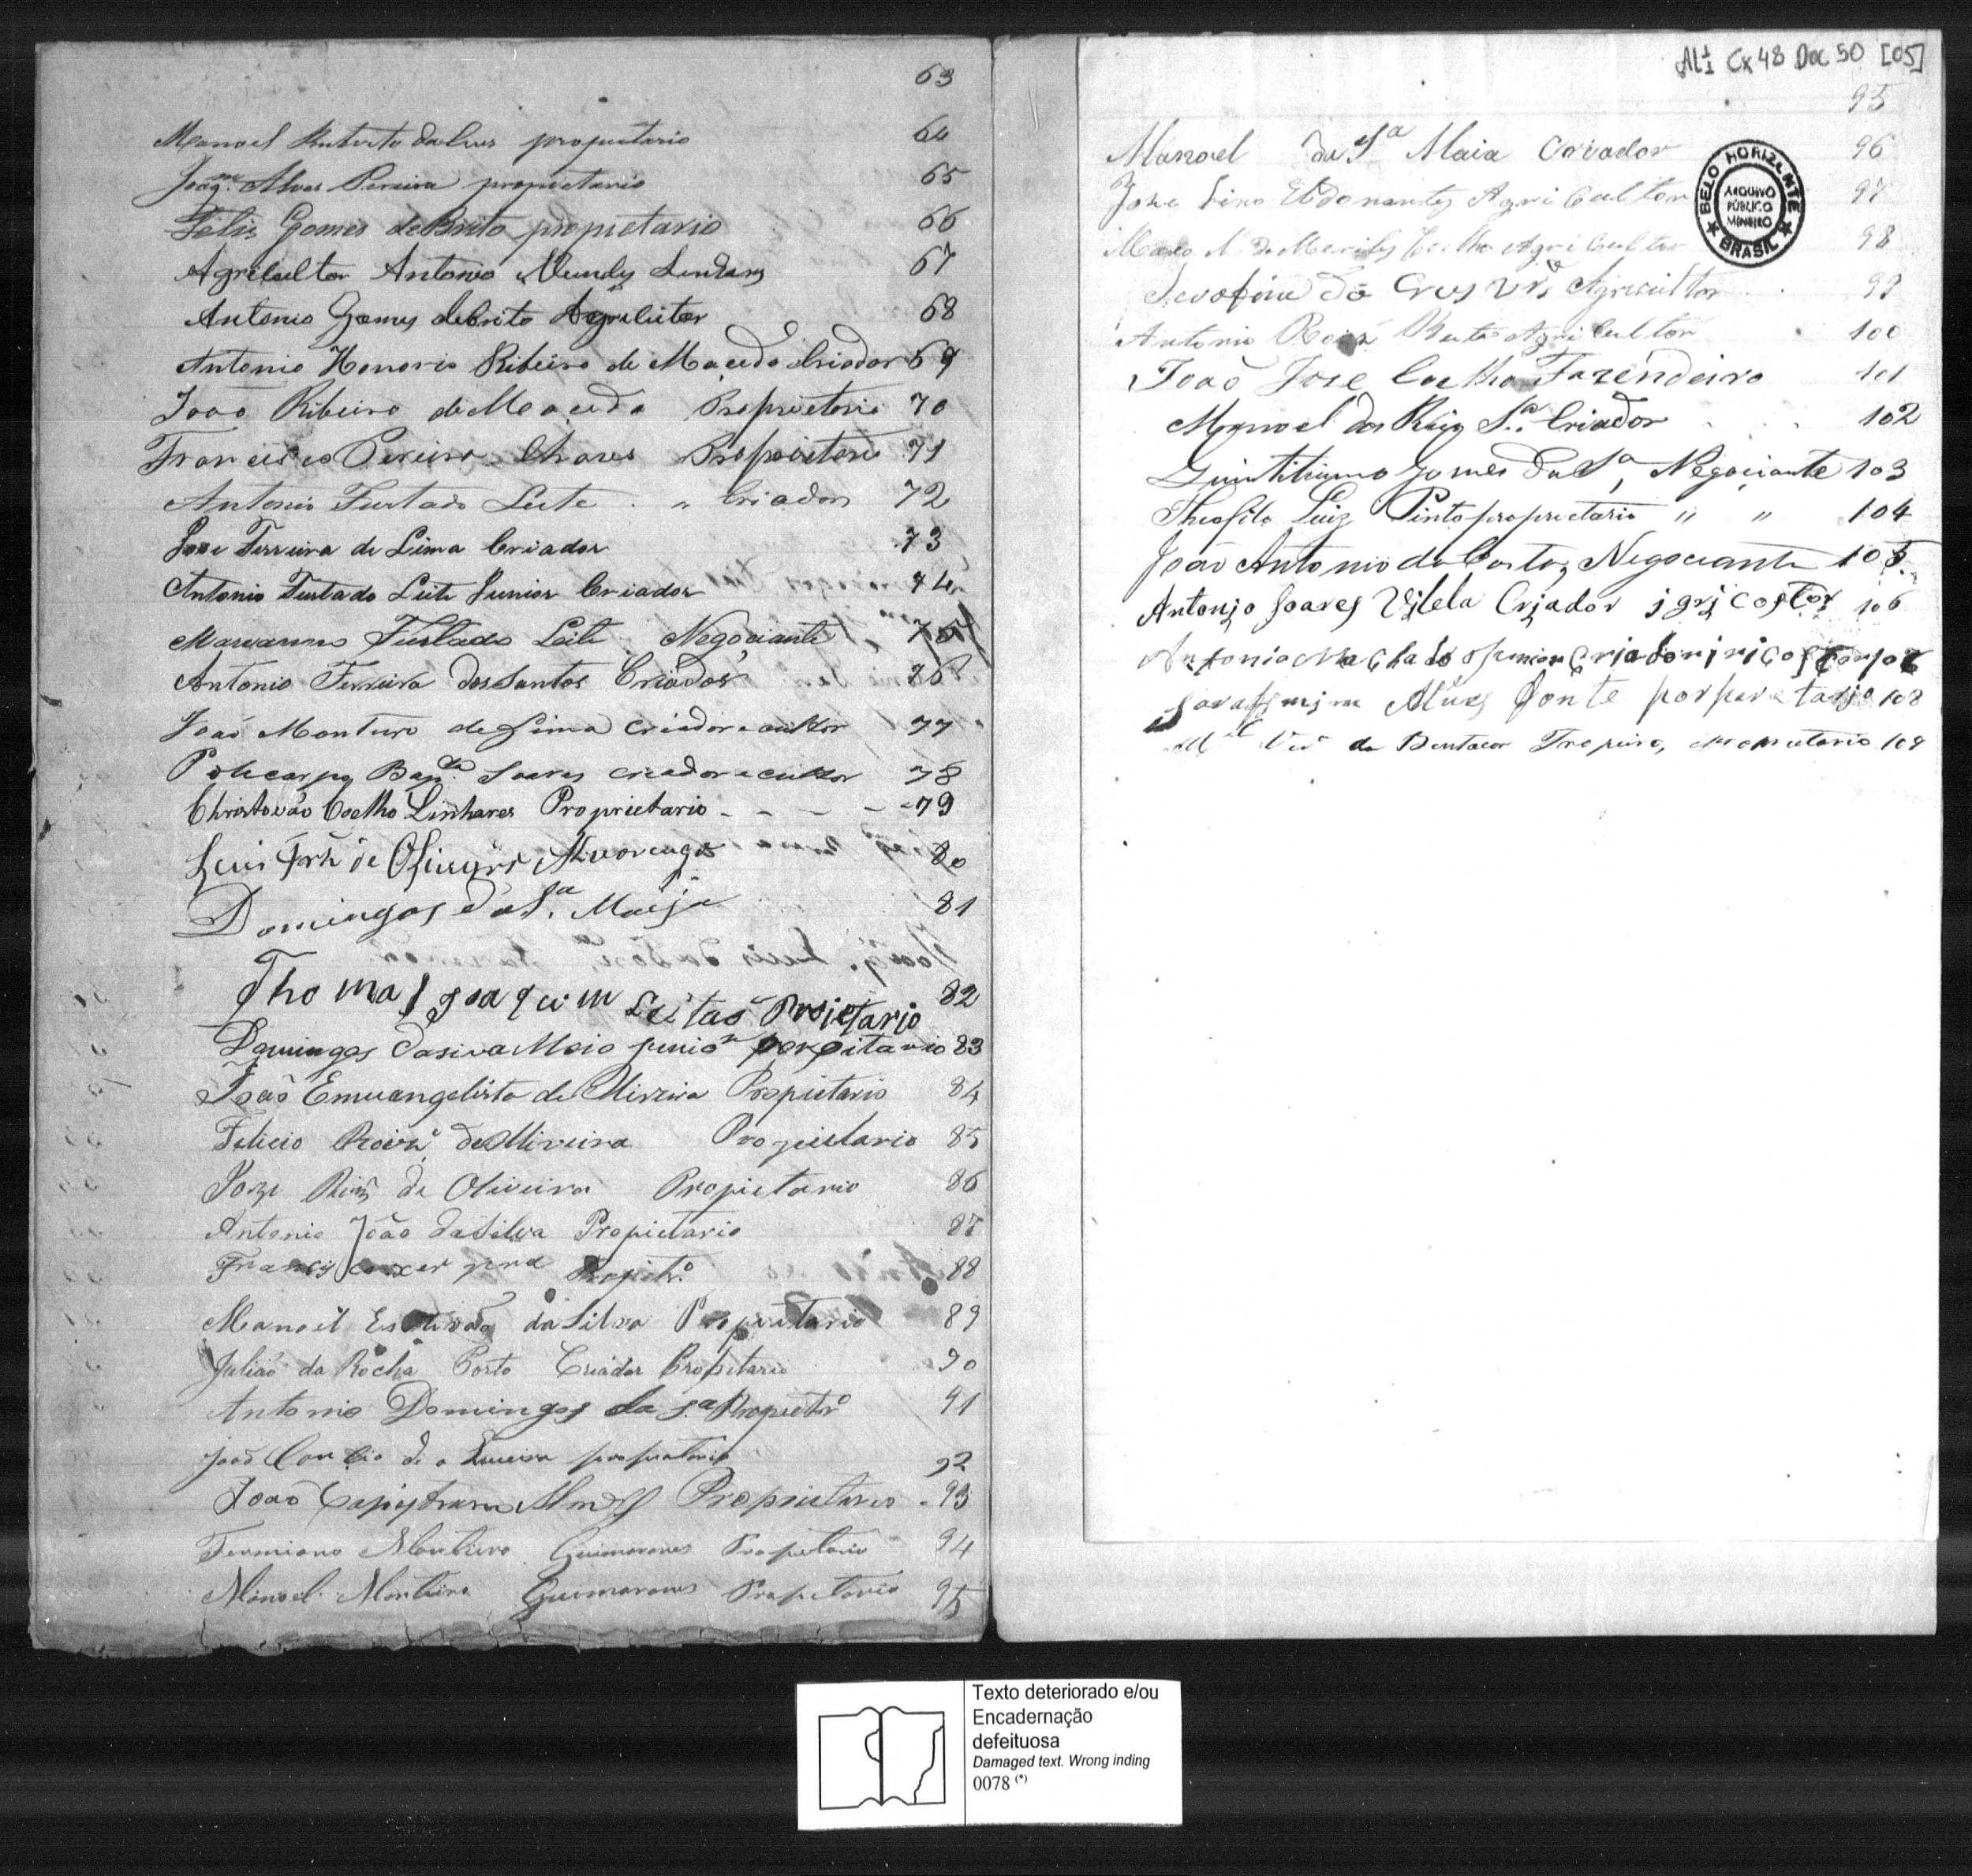 63
Manoel Roberto da Luis propietario 64
Joaqm. Alves Pereira propietario 65
Felis Gomes de Brito propietario 66
Agricultor Antonio Mendes 67
Antonio Gomes de brito Agricultor 68
Antonio Honorio Ribeiro de Macedo Criador 69
João Ribeiro de Macedo Proprietario 70
Francisco Pereira Chaves Proprietario 71
Antonio Furtado Leite . " Criador 72
Jose Ferreira de Lima Criador 73
Antonio Furtado Leite Junior Criador 74
Marianno Furtado Leite Negociante 75
Antonio Ferreira dos Santos Criador 76
João Monteiro de Lima criador e cultor 77
Policarpo Bapta. Soares creador e cultor 78
Christovão Coelho Linhares Proprietario - - - - 79
Luis de Oliveira Alvarenga 80
Domingos da Sa. Maija 81
Thomas Joaquim Leitão Propietario 82
Domingos da siva Maia junior 83
João Emvangelista de Oliveira Propietario 84
Felicio Roiz de Oliveira Propietario 85
Joze de Oliveira Propietario 86
Antonio João da Silva Propietario 87
Propietro. 88
Manoel Estevão da Silva Propietario 89
Julião da Rocha Porto Criador Propetario 90
Antonio Domingos da Sa. Propietro 91
João 92
João Capistrano Proprietario 93
Firmiano Monteiro Guimaraes Propetario 94
Manoel Monteiro Guimaraes Propetario 95
AL1 Cx 48 Doc 50 [05]
95
Manoel da Sa Maia Criador 96
Jose Lino Agricultor 97
Coelho Agricultor 98
da Crus Agricultor 99
Antonio Roiz Agricultor 100
João Jose Coelho Fazendeiro 101
Manoel dos Reis Sa. Criador 102
Gomes da Sa, Negociante 103
Theofilo Luiz Pinto proprietario " " 104
João Antonio da Costa, Negociante 105
Antonjo Soares Vilela Crjador 106
Antonio Machado Junior Crjador 107
Alves 108
da Tropeiro, 109
BELO HORIZONTE
ARQUIVO
PÚBLICO
MINEIRO
BRASIL
Texto deteriorado e/ou
Encadernação
defeituosa
Damaged text. Wrong inding
0078 (*)